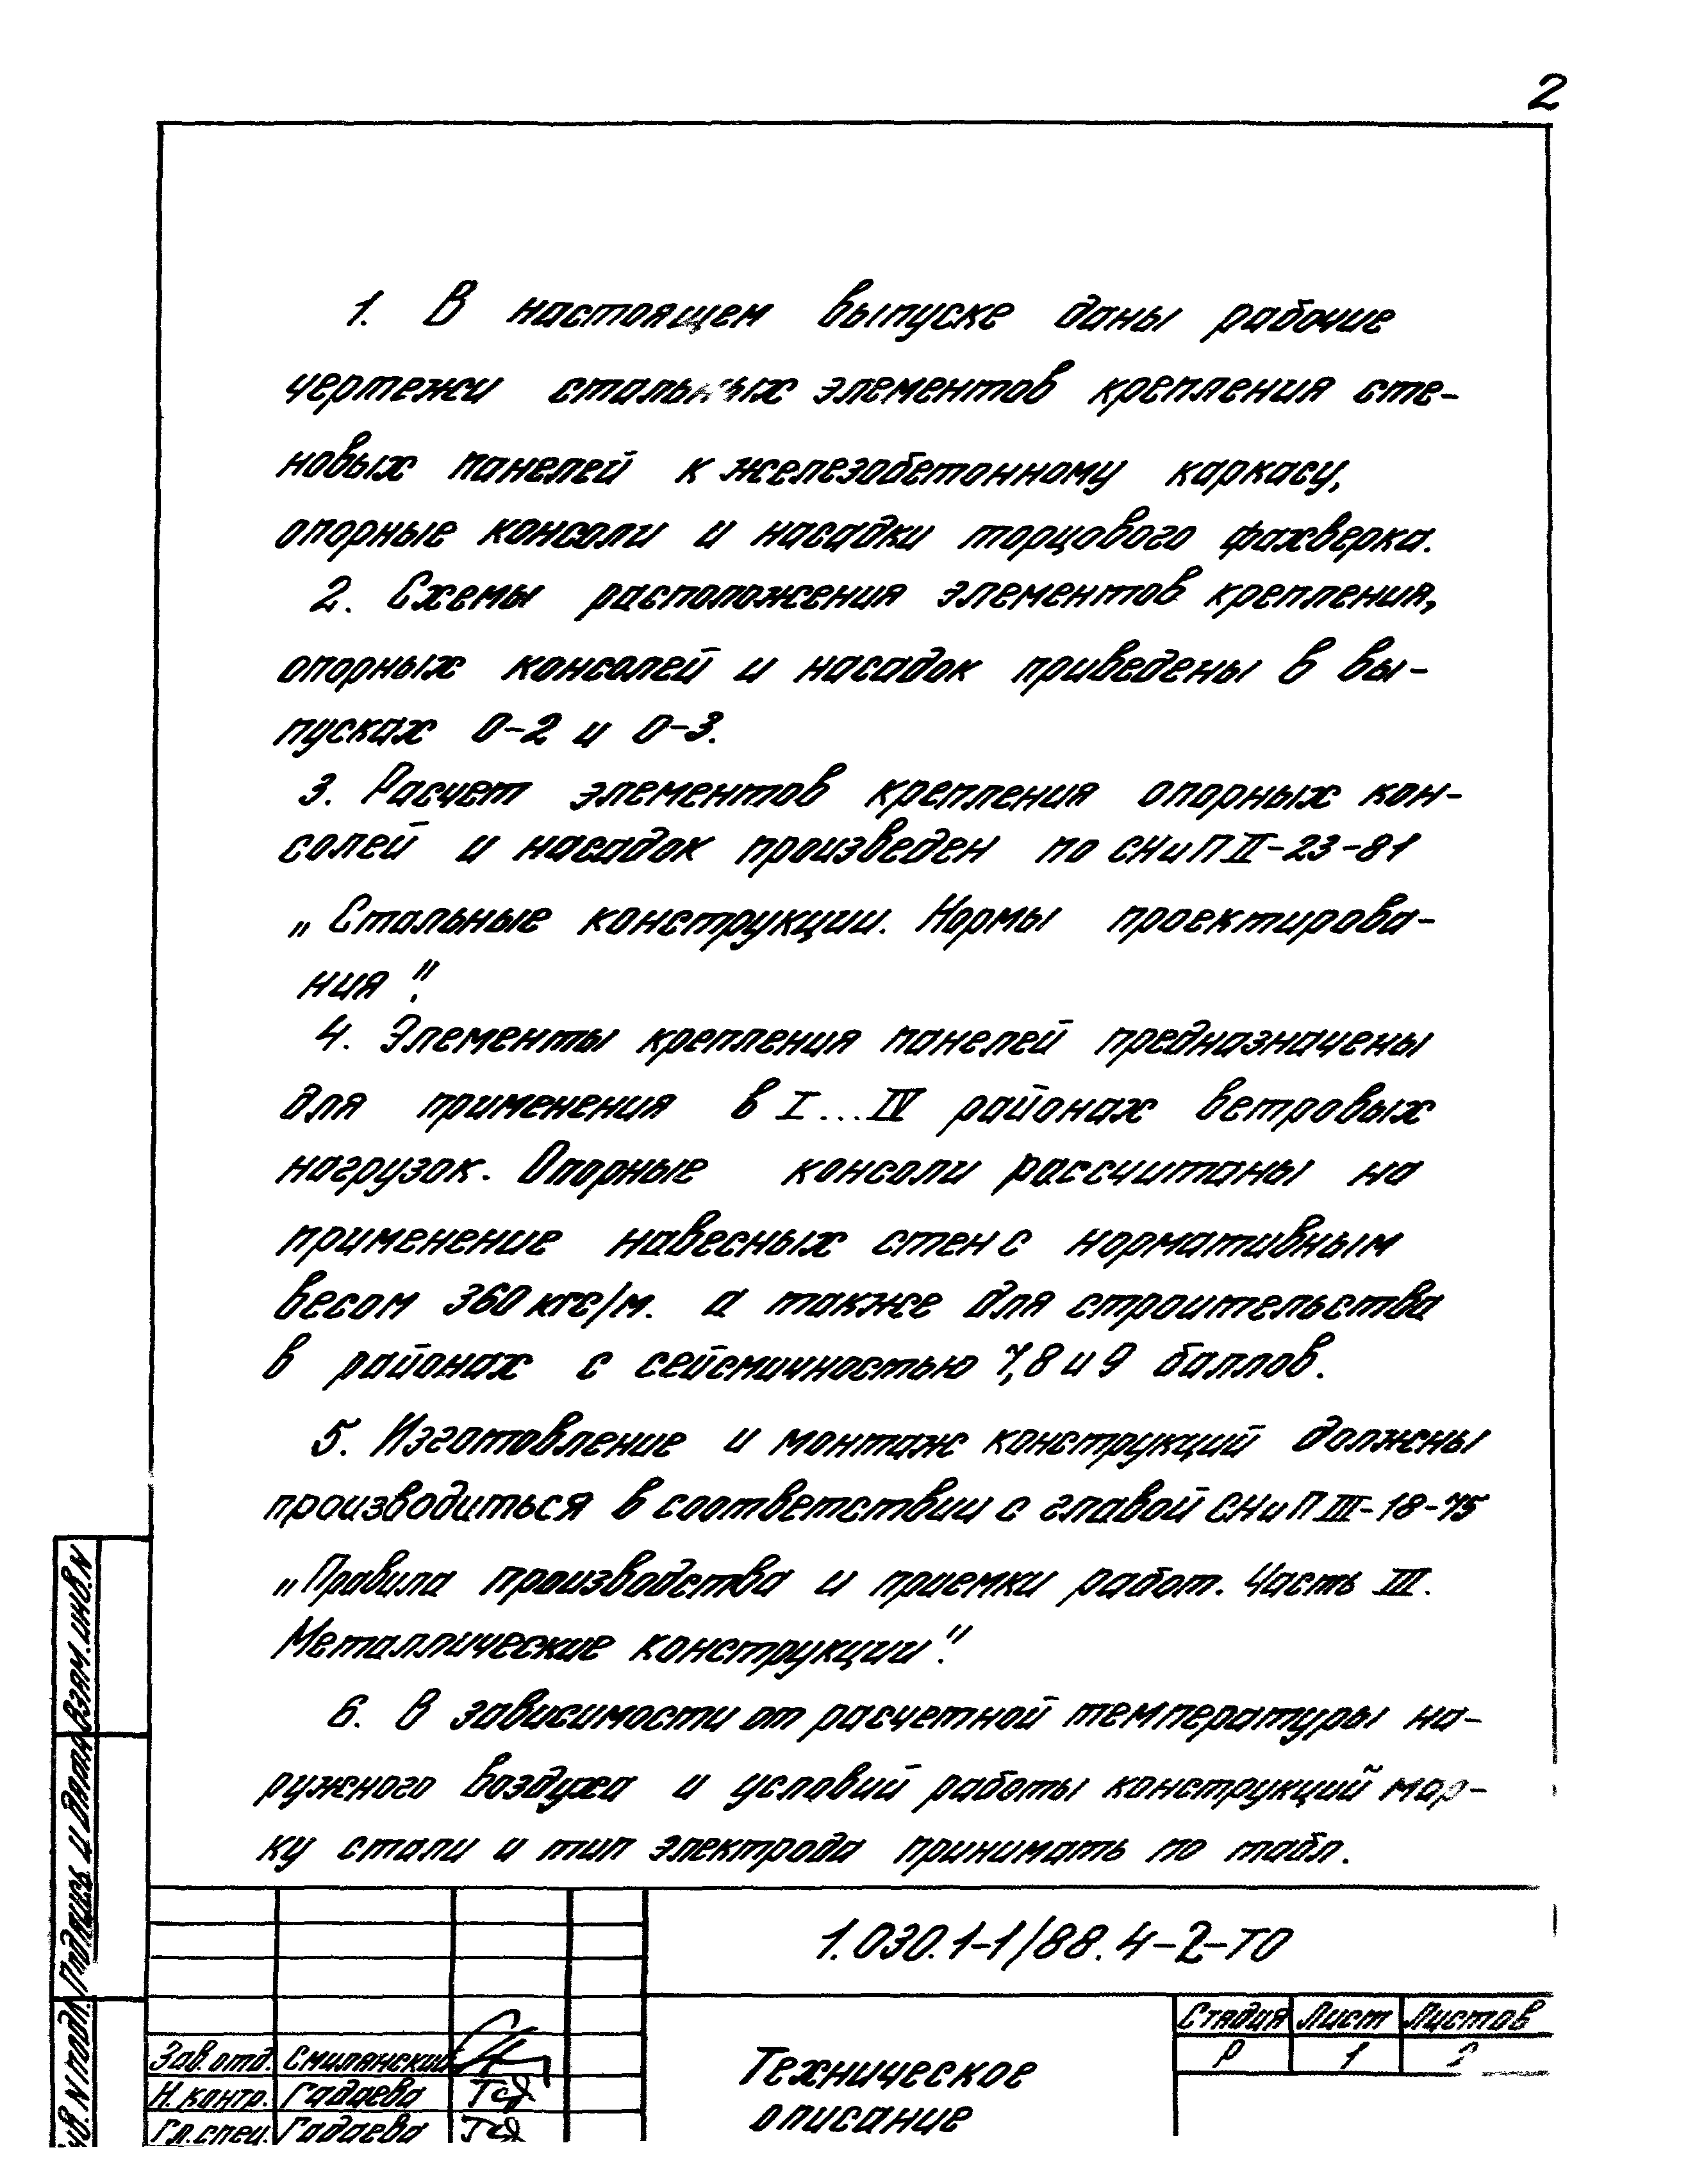 2
1. В настоящем выпуске даны рабочие
чертежи стальных элементов крепления сте-
новых панелей к железобетонному каркасу,
опорные консоли и насадки торцового фахверка.
2. Схемы расположения элементов крепления,
опорных консолей и насадок приведены в вы-
пусках 0-2 и 0-3.
3. Расчет элементов крепления опорных кон-
солей и насадок произведен по СНиП II-23-81
„Стальные конструкции. Нормы проектирова-
ния".
4. Элементы крепления панелей предназначены
для применения в I...IV районах ветровых
нагрузок. Опорные консоли рассчитаны на
применение навесных стен с нормативным
весом 360 кгс/м. а также для строительства
в районах с сейсмичностью 7,8 и 9 баллов.
5. Изготовление и монтаж конструкций должны
производиться в соответствии с главой СНиП III-18-75
„Правила производства и приемки работ. Часть III.
Металлические конструкции".
6. В зависимости от расчетной температуры на-
ружного воздуха и условий работы конструкций мар-
ку стали и тип электрода принимать по табл.
1.030.1-1/88.4-2-ТО
Стадия Лист Листов
Р 1 2
Техническое
описание
Зав. отд. Смилянский
Н. контр. Гадаева
Гл. спец. Гадаева
Взам. инв. N
Подпись и дата
N подл.